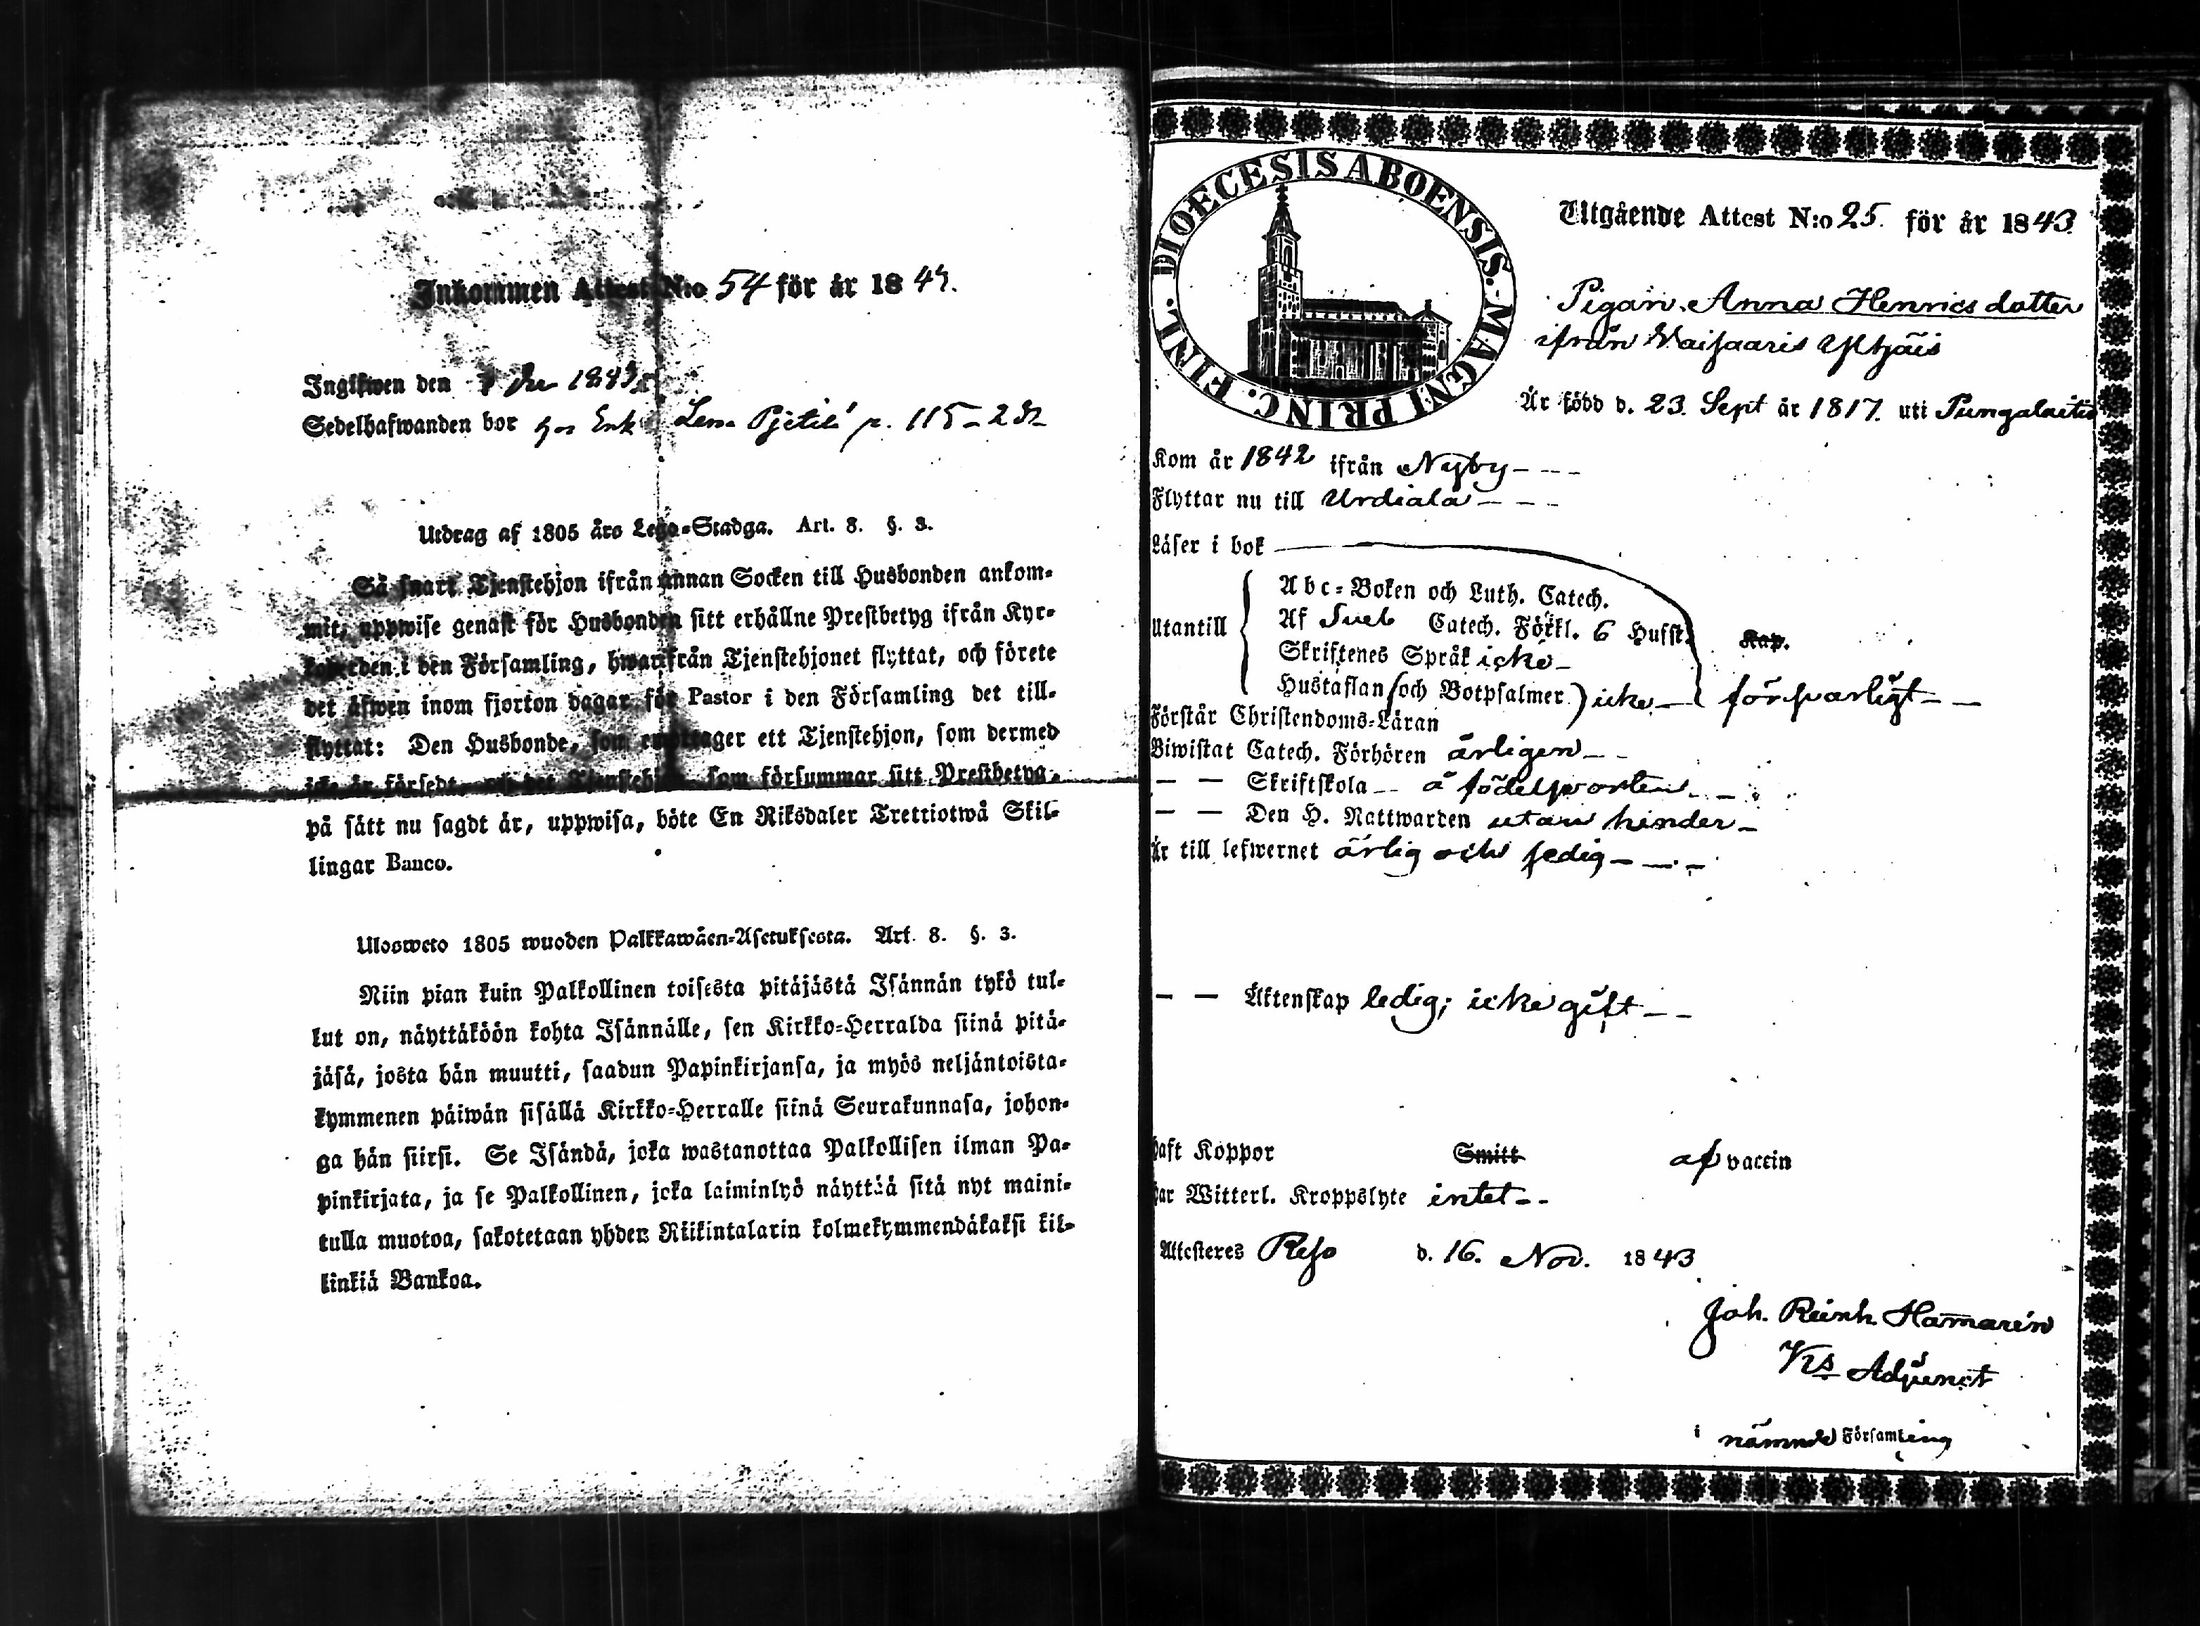 Inkommen Attest N:o 54 för år 184
Ingifwen den 1843
Sedelhafwanden bor hos Enk Lena p. 115
Utdrag af 1805 års Lego-Stadga. Art. 8. §. 3.
Så snart Tjenstehjon ifrån annan Socken till Husbonden ankom-
mit, uppwise genast för Husbonden sitt erhållne Prestbetyg ifrån Kyr-
koherden i den Församling, hwarifrån Tjenstehjonet flyttat, och förete
det äfwen inom fjorton dagar för Pastor i den Församling det till-
flyttat: Den Husbonde, som emottager ett Tjenstehjon, som dermed
icke är försedt, och det Tjenstehjon, som försummar sitt Prestbetyg,
på sätt nu sagdt är, uppwisa, böte En Riksdaler Trettiotwå Skil-
lingar Banco.
Ulosweto 1805 wuoden Palkkawäen-Asetuksesta. Art. 8. §. 3.
Niin pian kuin Palkollinen toisesta pitäjästä Isännän tykö tul-
lut on, näyttäköön kohta Isännälle, sen Kirkko-Herralda siinä pitä-
jäsä, josta hän muutti, saadun Papinkirjansa, ja myös neljäntoista-
kymmenen päiwän sisällä Kirkko-Herralle siinä Seurakunnasa, johon-
ga hän siirsi. Se Isändä, joka wastanottaa Palkollisen ilman Pa-
pinkirjata, ja se Palkollinen, joka laiminlyö näyttää sitä nyt maini-
tulla muotoa, sakotetaan yhden Riikintalarin kolmekymmendäkaksi kil-
linkiä Bankoa.
DIOECESIS ABOENSIS. MAGNI PRINC. FINL.
Utgående Attest N:o 25. för år 1843
Pigan Anna Henricsdotter
ifrån Vaisaaris
Är född d. 23. Sept år 1817. uti Pungalaitio
Kom år 1842 ifrån Nyby - - -
Flyttar nu till Urdiala - - -
Läser i bok
Abc-Boken och Luth. Catech.
Utantill Af Sveb Catech. Förkl. 6 Hufst. Kap.
Skriftenes Språk icke -
Hustaflan (och Botpsalmer) icke - försvarligt - -
Förstår Christendoms-Läran
Biwistat Catech. Förhören årligen - -
— — Skriftskola - - å födelseorten - -
— — Den H. Nattwarden utan hinder -
Är till lefwernet ärlig och sedig - - -
— — Äktenskap ledig; icke gift - -
haft Koppor Smitt af vaccin
har Witterl. Kroppslyte intet - -
Attesteres Reso d. 16. Nov. 1843
Joh. Reinh. Hamarén
Vis Adjunct
i nämnde Församling